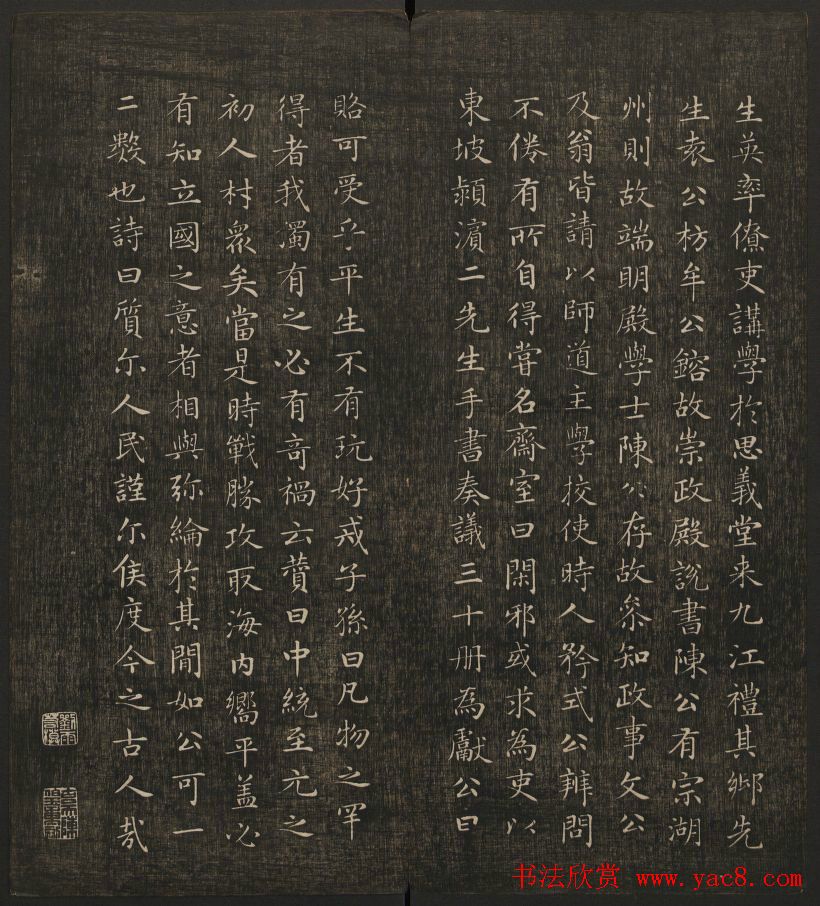 生英率僚吏講學於思義堂来九江禮其鄉先
生袁公枋牟公鎔故崇政殿說書陳公有宗湖
州則故端明殿學士陳公存故參知政事文公
及翁皆請以師道主學校使時人矜式公辨問
不倦有所自得嘗名齋室曰閑邪或求為吏以
東坡潁濱二先生手書奏議三十册為獻公曰
賂可受乎平生不有玩好戒子孫曰凡物之罕
得者我獨有之必有奇禍云贊曰中統至元之
初人材衆矣當是時戰勝攻取海内嚮平盖必
有知立國之意者相與弥綸於其間如公可一
二數也詩曰質尓人民謹尓侯度今之古人哉
書法欣赏 www.yac8.com